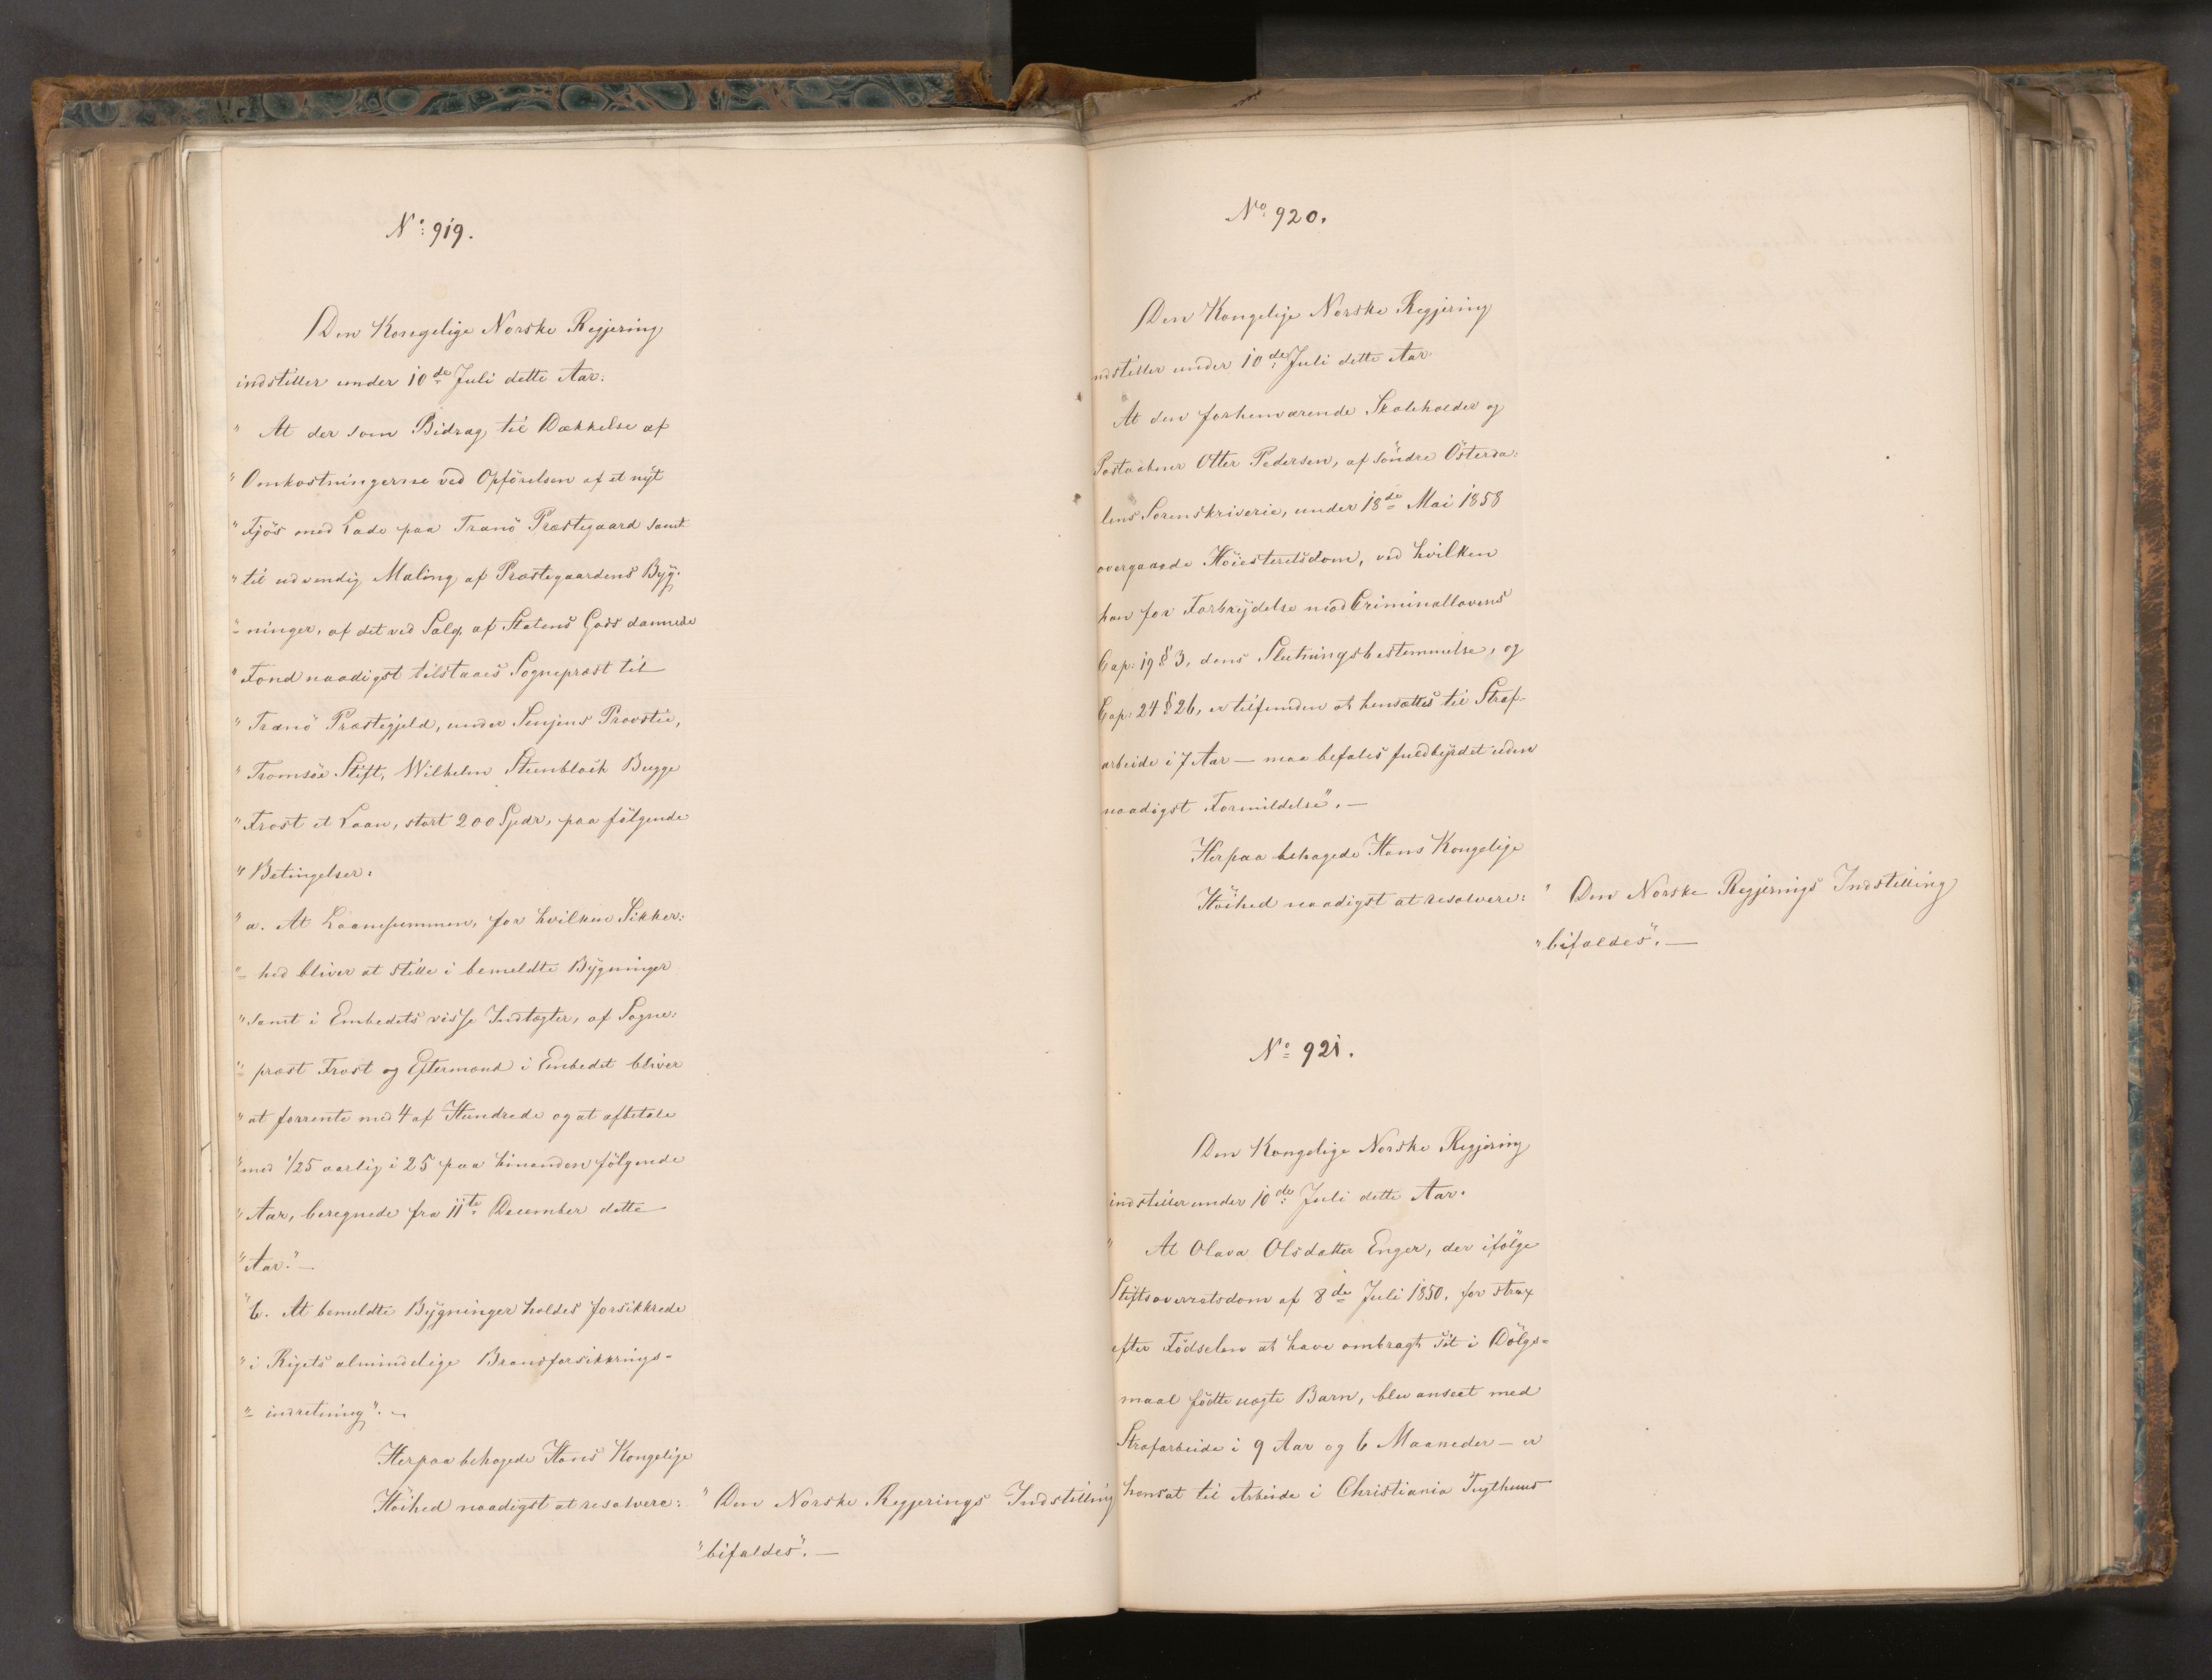 No: 919.
Den Kongelige Norske Regjering
indstiller under 10de Juli dette Aar:
" At der som Bidrag til Dækkelse af
" Omkostningerne ved Opförelsen af et nyt
" Fjös med Lade paa Tranö Præstegaard samt
" til udvendig Maling af Præstegaardens Byg-
"- ninger, af det ved Salg af Statens Gods dannede
" Fond naadigst tilstaaes Sognepræst til
" Tranö Præstegjeld, under Senjens Provstie,
" Tromsöe Stift, Wilhelm Steenbloch Bugge
" Frost et Laan, stort 200 Spdr, paa fölgende
" Betingelser:
" a. At Laanesummen, for hvilken Sikker:
"- hed bliver at stille i bemeldte Bygninger
" samt i Embedets visse Indtægter, af Sogne:
"- præst Frost og Eftermænd i Embedet bliver
" at forrente med 4 af Hundrede og at afbetale
" med 1/25 aarlig i 25 paa hinanden fölgende
" Aar, beregnede fra 11te December dette
" Aar." —
" b. At bemeldte Bygninger holdes forsikkrede
" i Rigets almindelige Brandforsikkrings-
"- indretning". —
Herpaa behagede Hans Kongelige
Höihed naadigst at resolvere: " Den Norske Regjerings Indstilling
" bifaldes". —
No 920.
Den Kongelige Norske Regjering
indstiller under 10de Juli dette Aar.
At den forhenværende Skoleholder og
Postaabner Otter Pedersen, af söndre Österda:
lens Sorenskriverie, under 18de Mai 1858
overgaaede Höiesteretsdom, ved hvilken
han for Forbrydelse mod Criminallovens
Cap: 19 § 3, dens Slutningsbestemmelse, og
Cap: 24 § 26, er tilfunden at hensættes til Straf-
arbeide i 7 Aar — maa befales fuldbyrdet uden
naadigst Formildelse". —
Herpaa behagede Hans Kongelige
Höihed naadigst at resolvere: " Den Norske Regjerings Indstilling
" bifaldes". —
No 921.
Den Kongelige Norske Regjering
indstiller under 10de Juli dette Aar.
" At Olava Olsdatter Enger, der ifölge
Stiftsoverretsdom af 8de Juli 1850, for strax
efter Födselen at have ombragt sit i Dölgs=
maal födte uægte Barn, blev anseet med
Strafarbeide i 9 Aar og 6 Maaneder — er
hensat til Arbeide i Christiania Tugthuus